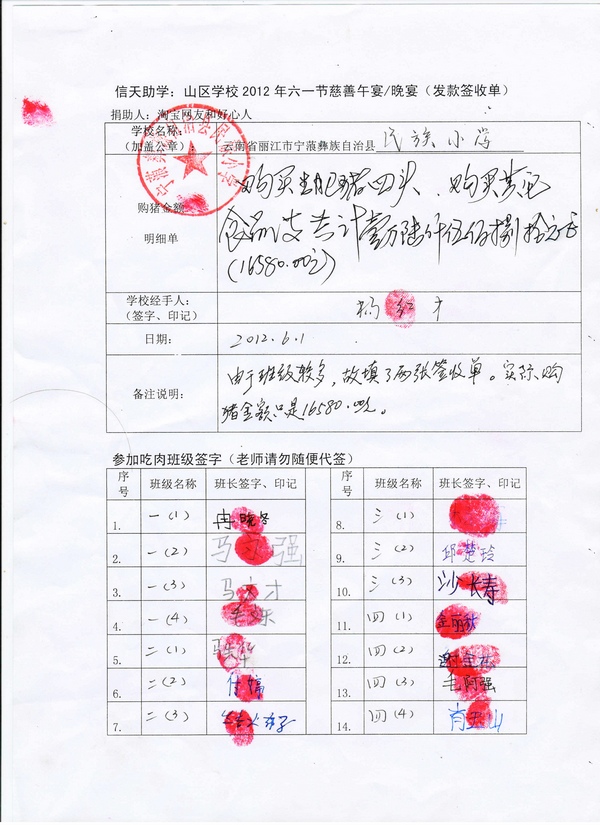 信天助学：山区学校2012年六一节慈善午宴/晚宴（发款签收单）
捐助人：淘宝网友和好心人
学校名称：
（加盖公章）：
云南省丽江市宁蒗彝族自治县 民族小学
购猪金额
明细单
购买生肥猪四头、购买其它
食品支共计壹万陆仟伍佰捌拾元正
(16580.00元)
学校经手人：
（签字、印记）
杨红才
日期：
2012.6.1
备注说明：
由于班级较多，故填了两张签收单。实际购
猪金额只是16580.00元。
参加吃肉班级签字（老师请勿随便代签）
序号 班级名称 班长签字、印记 序号 班级名称 班长签字、印记
1. 一（1） 冉晓冬 8. 三（1）
2. 一（2） 马小强 9. 三（2） 邱楚玲
3. 一（3） 马文才 10. 三（3） 沙长寿
4. 一（4） 11. 四（1） 金丽秋
5. 二（1） 12. 四（2）
6. 二（2） 付娟 13. 四（3） 毛阿强
7. 二（3） 14. 四（4） 肖玉山